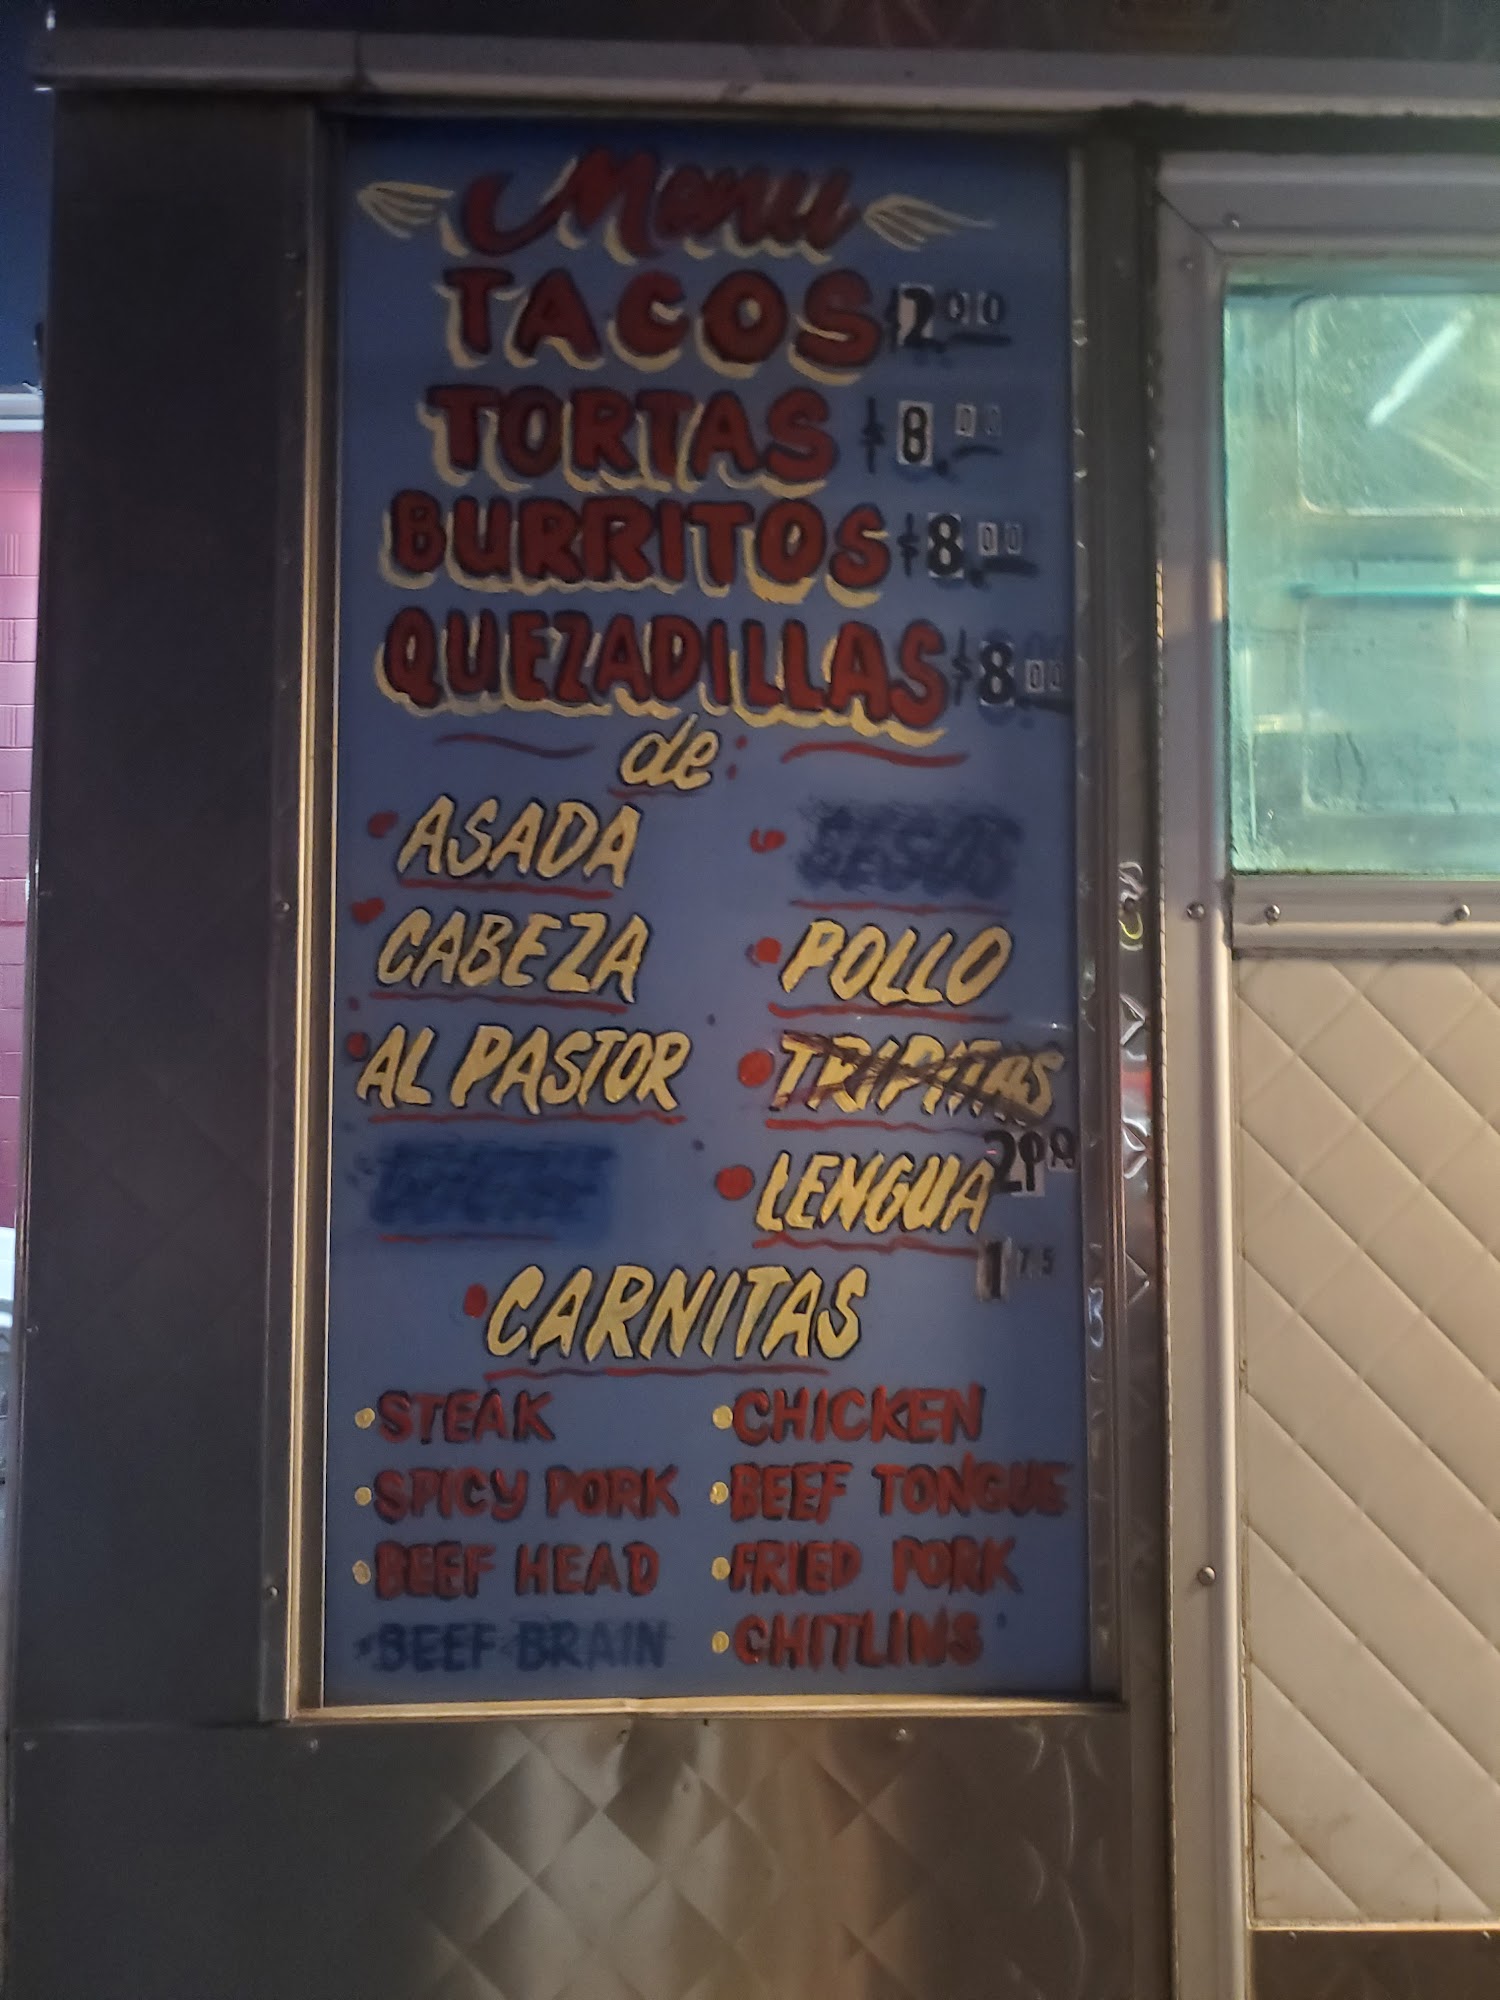 Menu
TACOS $2.00
TORTAS $8.00
BURRITOS $8.00
QUEZADILLAS $8.00
de:
ASADA
CABEZA
POLLO
AL PASTOR
TRIPITAS
LENGUA
1 75
CARNITAS
STEAK
CHICKEN
SPICY PORK
BEEF TONGUE
BEEF HEAD
FRIED PORK
BEEF BRAIN
CHITLINS